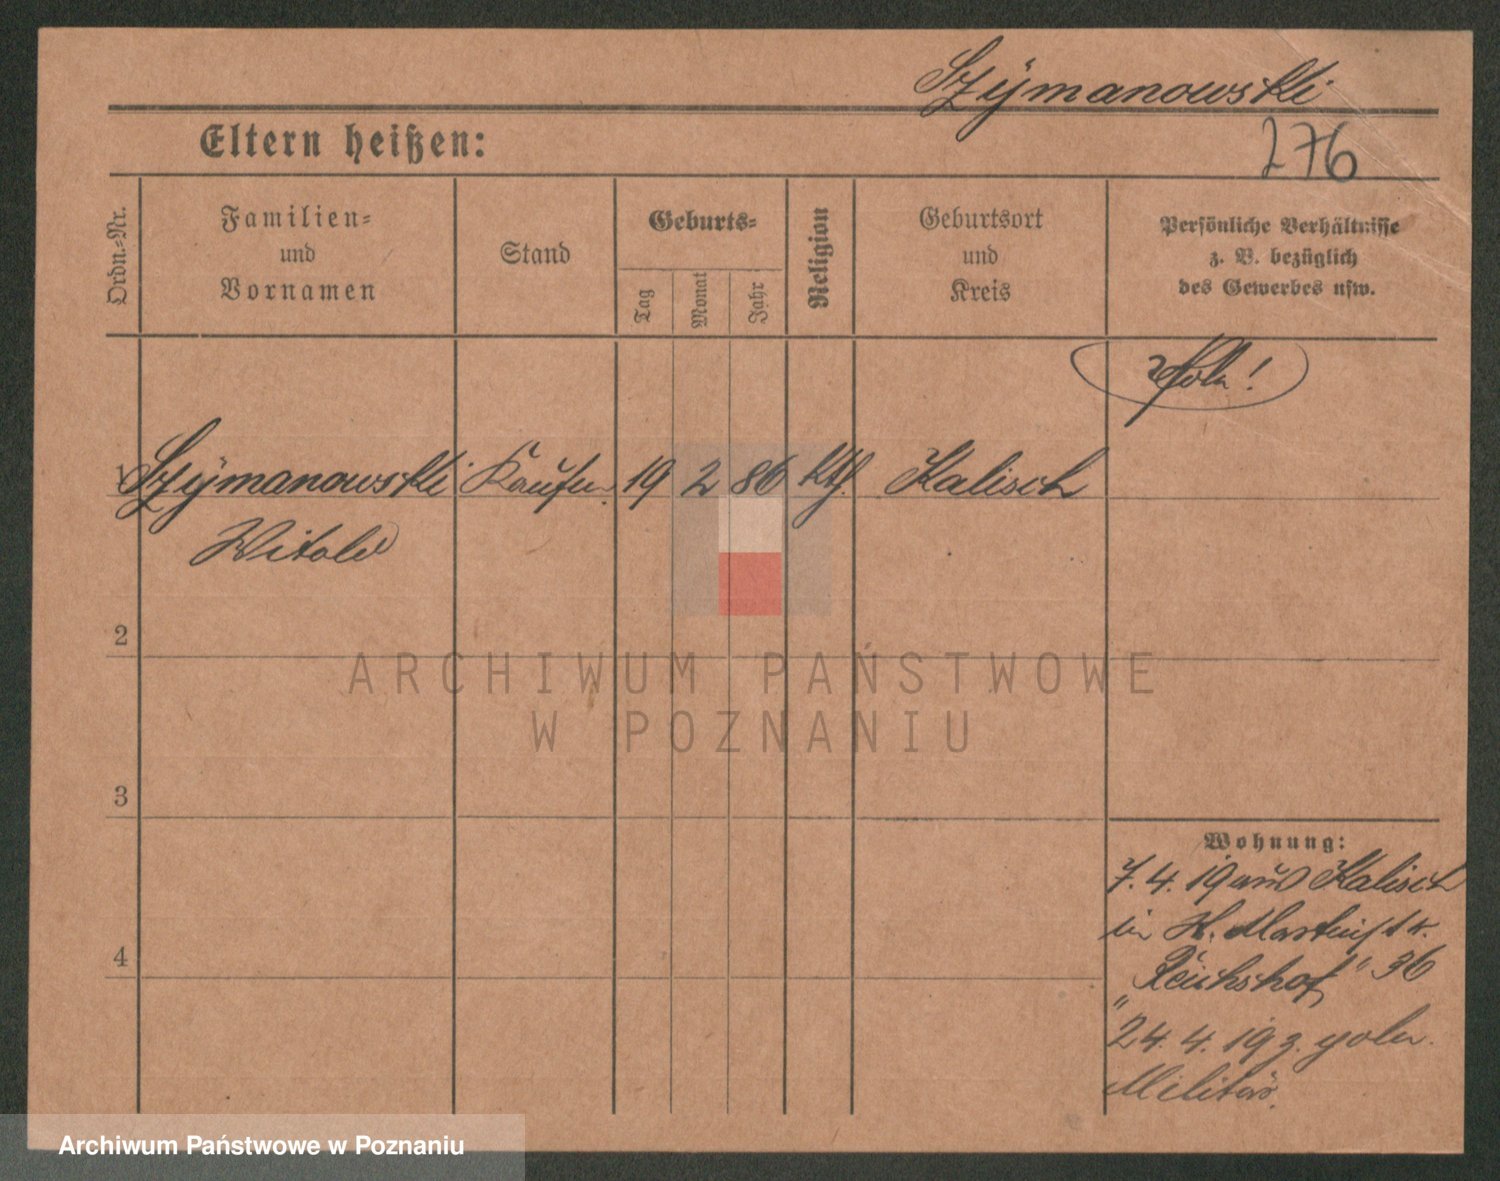 Szymanowski
Eltern heißen:
276
Ordn.-Nr.
Familien-
und
Vornamen
Stand
Geburts-
Tag
Monat
Jahr
Religion
Geburtsort
und
Kreis
Persönliche Verhältnisse
z. B. bezüglich
des Gewerbes usw.
Pole!
1 Szymanowski Kaufm. 19 2 86 kth. Kalisch
Witold
2
3
4
Wohnung:
7.4.19 aus Kalisch
in St. Martinstr.
"Reichshof" 36
24.4.19 z. poln.
Militär.
ARCHIWUM PAŃSTWOWE
W POZNANIU
Archiwum Państwowe w Poznaniu